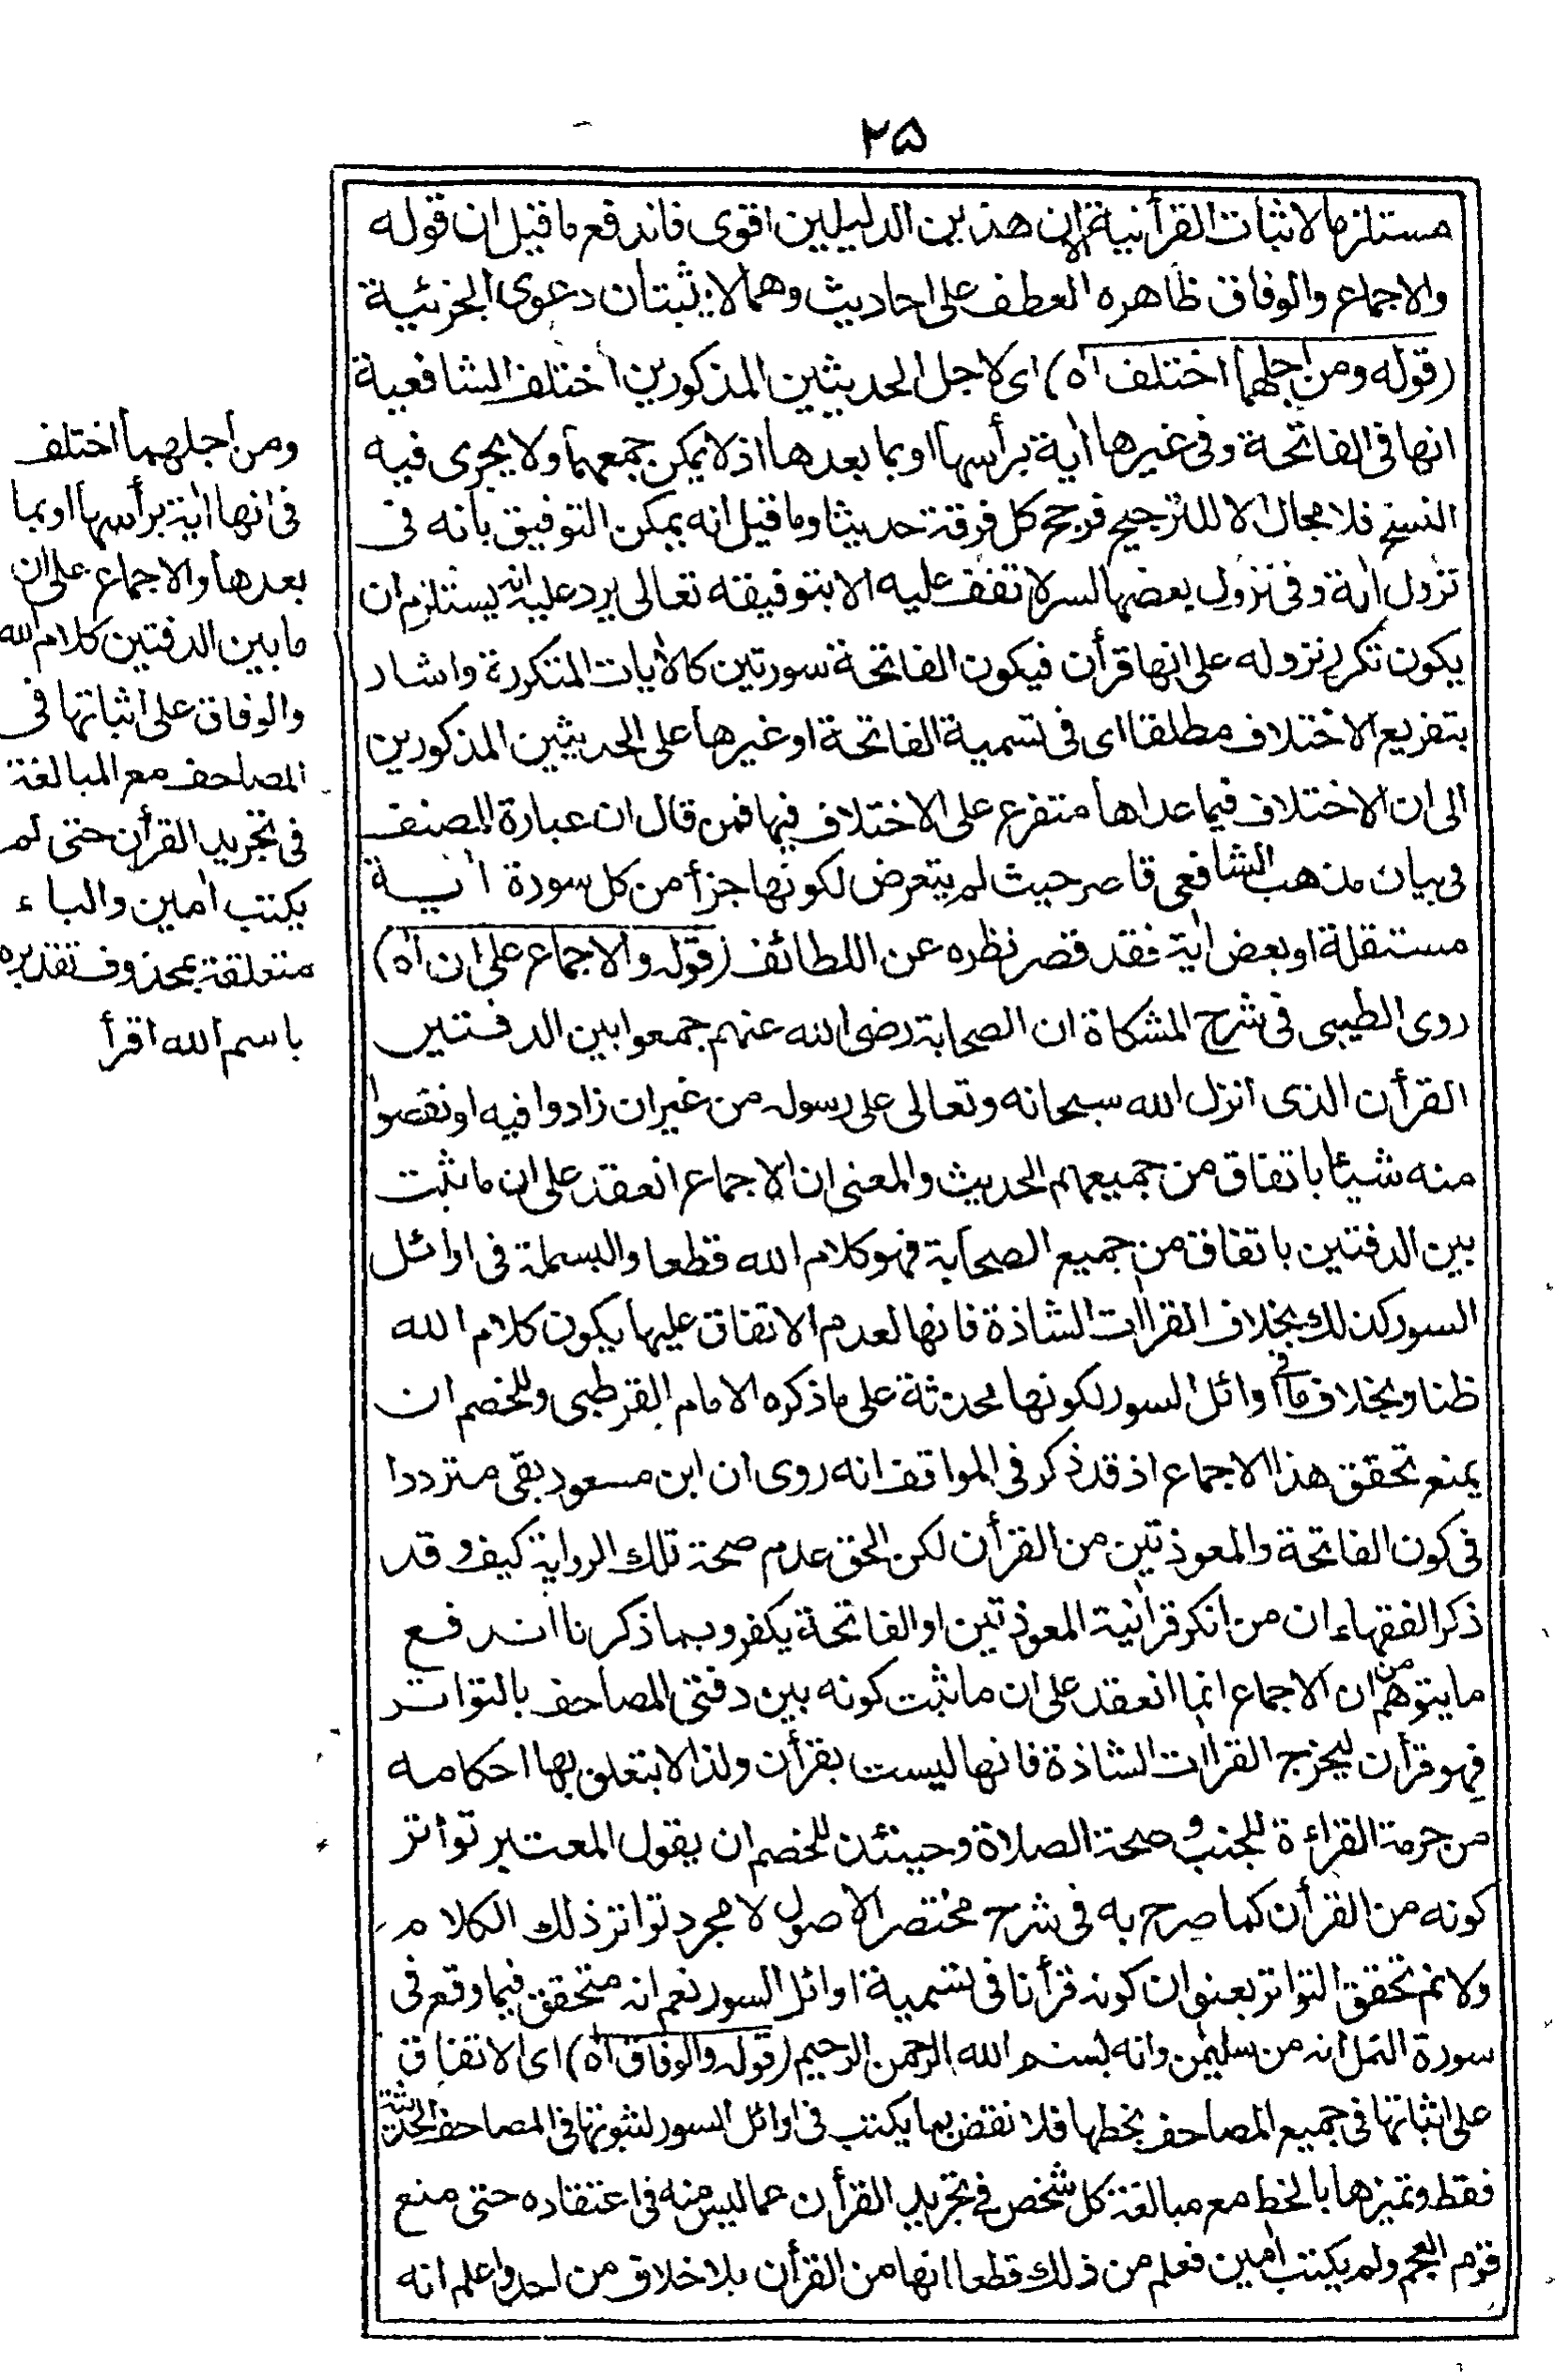 ٢٥
مستلزما لاثبات القرأنية الا ان هذين الدليلين اقوى فاندفع ما قيل ان قوله
والاجماع والوفاق ظاهره العطف على احاديث وهما لا يثبتان دعوى الجزئية
(قوله ومن اجلهما اختلف اه) اى لاجل الحديثين المذكورين اختلف الشافعية
انها فى الفاتحة وفى غيرها أية برأسها او بما بعدها اذ لا يمكن جمعهما ولا يجرى فيه
النسخ فلا مجال الا للترجيح فرجح كل فرقة حديثا وما قيل انه يمكن التوفيق بانه فى
نزول أية وفى نزول بعضها السر لا تقف عليه الا بتوفيقه تعالى يرد عليه انه يستلزم ان
يكون تكرر نزوله على انها قرأن فيكون الفاتحة سورتين كالأيات المتكررة واشار
بتفريع الاختلاف مطلقا اى فى تسمية الفاتحة او غيرها على الحديثين المذكورين
الى ان الاختلاف فيما عداها متفرع على الاختلاف فيها فمن قال ان عبارة المصنف
فى بيان مذهب الشافعى قاصر حيث لم يتعرض لكونها جزأ من كل سورة أية
مستقلة او بعض أية فقد قصر نظره عن اللطائف (قوله والاجماع على ان اه)
روى الطيبى فى شرح المشكاة ان الصحابة رضى الله عنهم جمعوا بين الدفتين
القرأن الذى انزل الله سبحانه وتعالى على رسوله من غير ان زادوا فيه او نقصوا
منه شيئا باتفاق من جميعهم الحديث والمعنى ان الاجماع انعقد على ان ما ثبت
بين الدفتين باتفاق من جميع الصحابة فهو كلام الله قطعا والبسملة فى اوائل
السور كذلك بخلاف القراأت الشاذة فانها لعدم الاتفاق عليها يكون كلام الله
ظنا وبخلاف ما فى اوائل السور لكونها محدثة على ما ذكره الامام القرطبى وللخصم ان
يمنع تحقق هذا الاجماع اذ قد ذكر فى المواقف انه روى ان ابن مسعود بقى مترددا
فى كون الفاتحة والمعوذتين من القرأن لكن الحق عدم صحة تلك الرواية كيف وقد
ذكر الفقهاء ان من انكر قرأنية المعوذتين او الفاتحة يكفر وبما ذكرنا اندفع
ما يتوهم من ان الاجماع انما انعقد على ان ما ثبت كونه بين دفتى المصاحف بالتواتر
فهو قرأن ليخرج القراأت الشاذة فانها ليست بقرأن ولذا لا يتعلق بها احكامه
من حرمة القراءة للجنب وصحة الصلاة وحينئذ للخصم ان يقول المعتبر تواتر
كونه من القرأن كما صرح به فى شرح مختصر الاصول لا مجرد تواتر ذلك الكلام
ولانم تحقق التواتر بعنوان كونه قرأنا فى تسمية اوائل السور نعم انه متحقق فيما وقع فى
سورة النمل انه من سليمن وانه بسم الله الرحمن الرحيم (قوله والوفاق اه) اى الاتفاق
على اثباتها فى جميع المصاحف بخطها فلا نقض بما يكتب فى اوائل السور لثبوتها فى المصاحف المحدثة
فقط وتميزها بالخط مع مبالغة كل شخص فى تجريد القرأن عما ليس منه فى اعتقاده حتى منع
قوم العجم ولم يكتب أمين فعلم من ذلك قطعا انها من القرأن بلا خلاف من احد واعلم انه
ومن اجلهما اختلف
فى انها أية برأسها او بما
بعدها والاجماع على ان
ما بين الدفتين كلام الله
والوفاق على اثباتها فى
المصاحف مع المبالغة
فى تجريد القرأن حتى لم
يكتب أمين والباء
متعلقة بمحذوف تقديره
باسم الله اقرأ